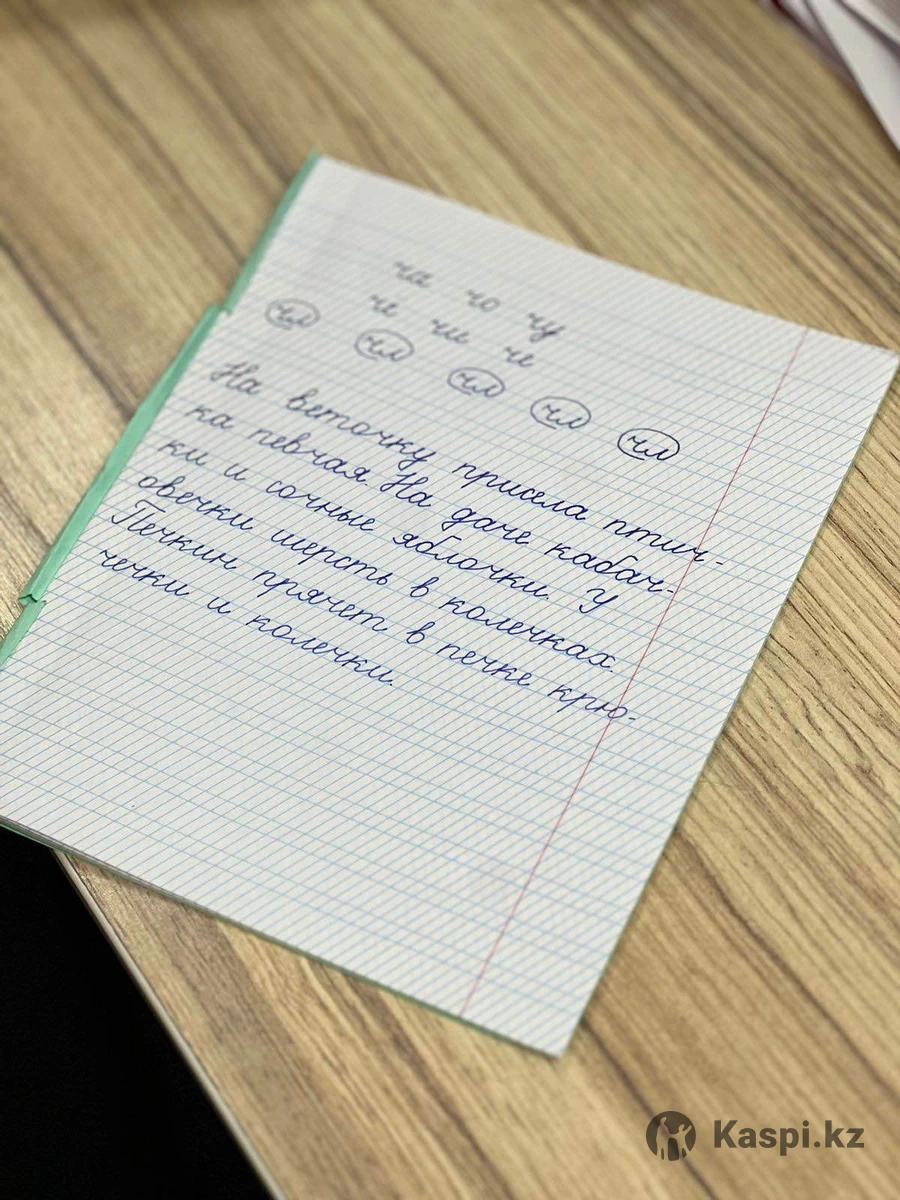 ча чо чу
че чи че
чл чл чл чл чл
На веточку присела птич-
ка певчая. На даче кабач-
ки и сочные яблочки. У
овечки шерсть в колечках.
Печкин прячет в печке крю-
чечки и колечки.
Kaspi.kz